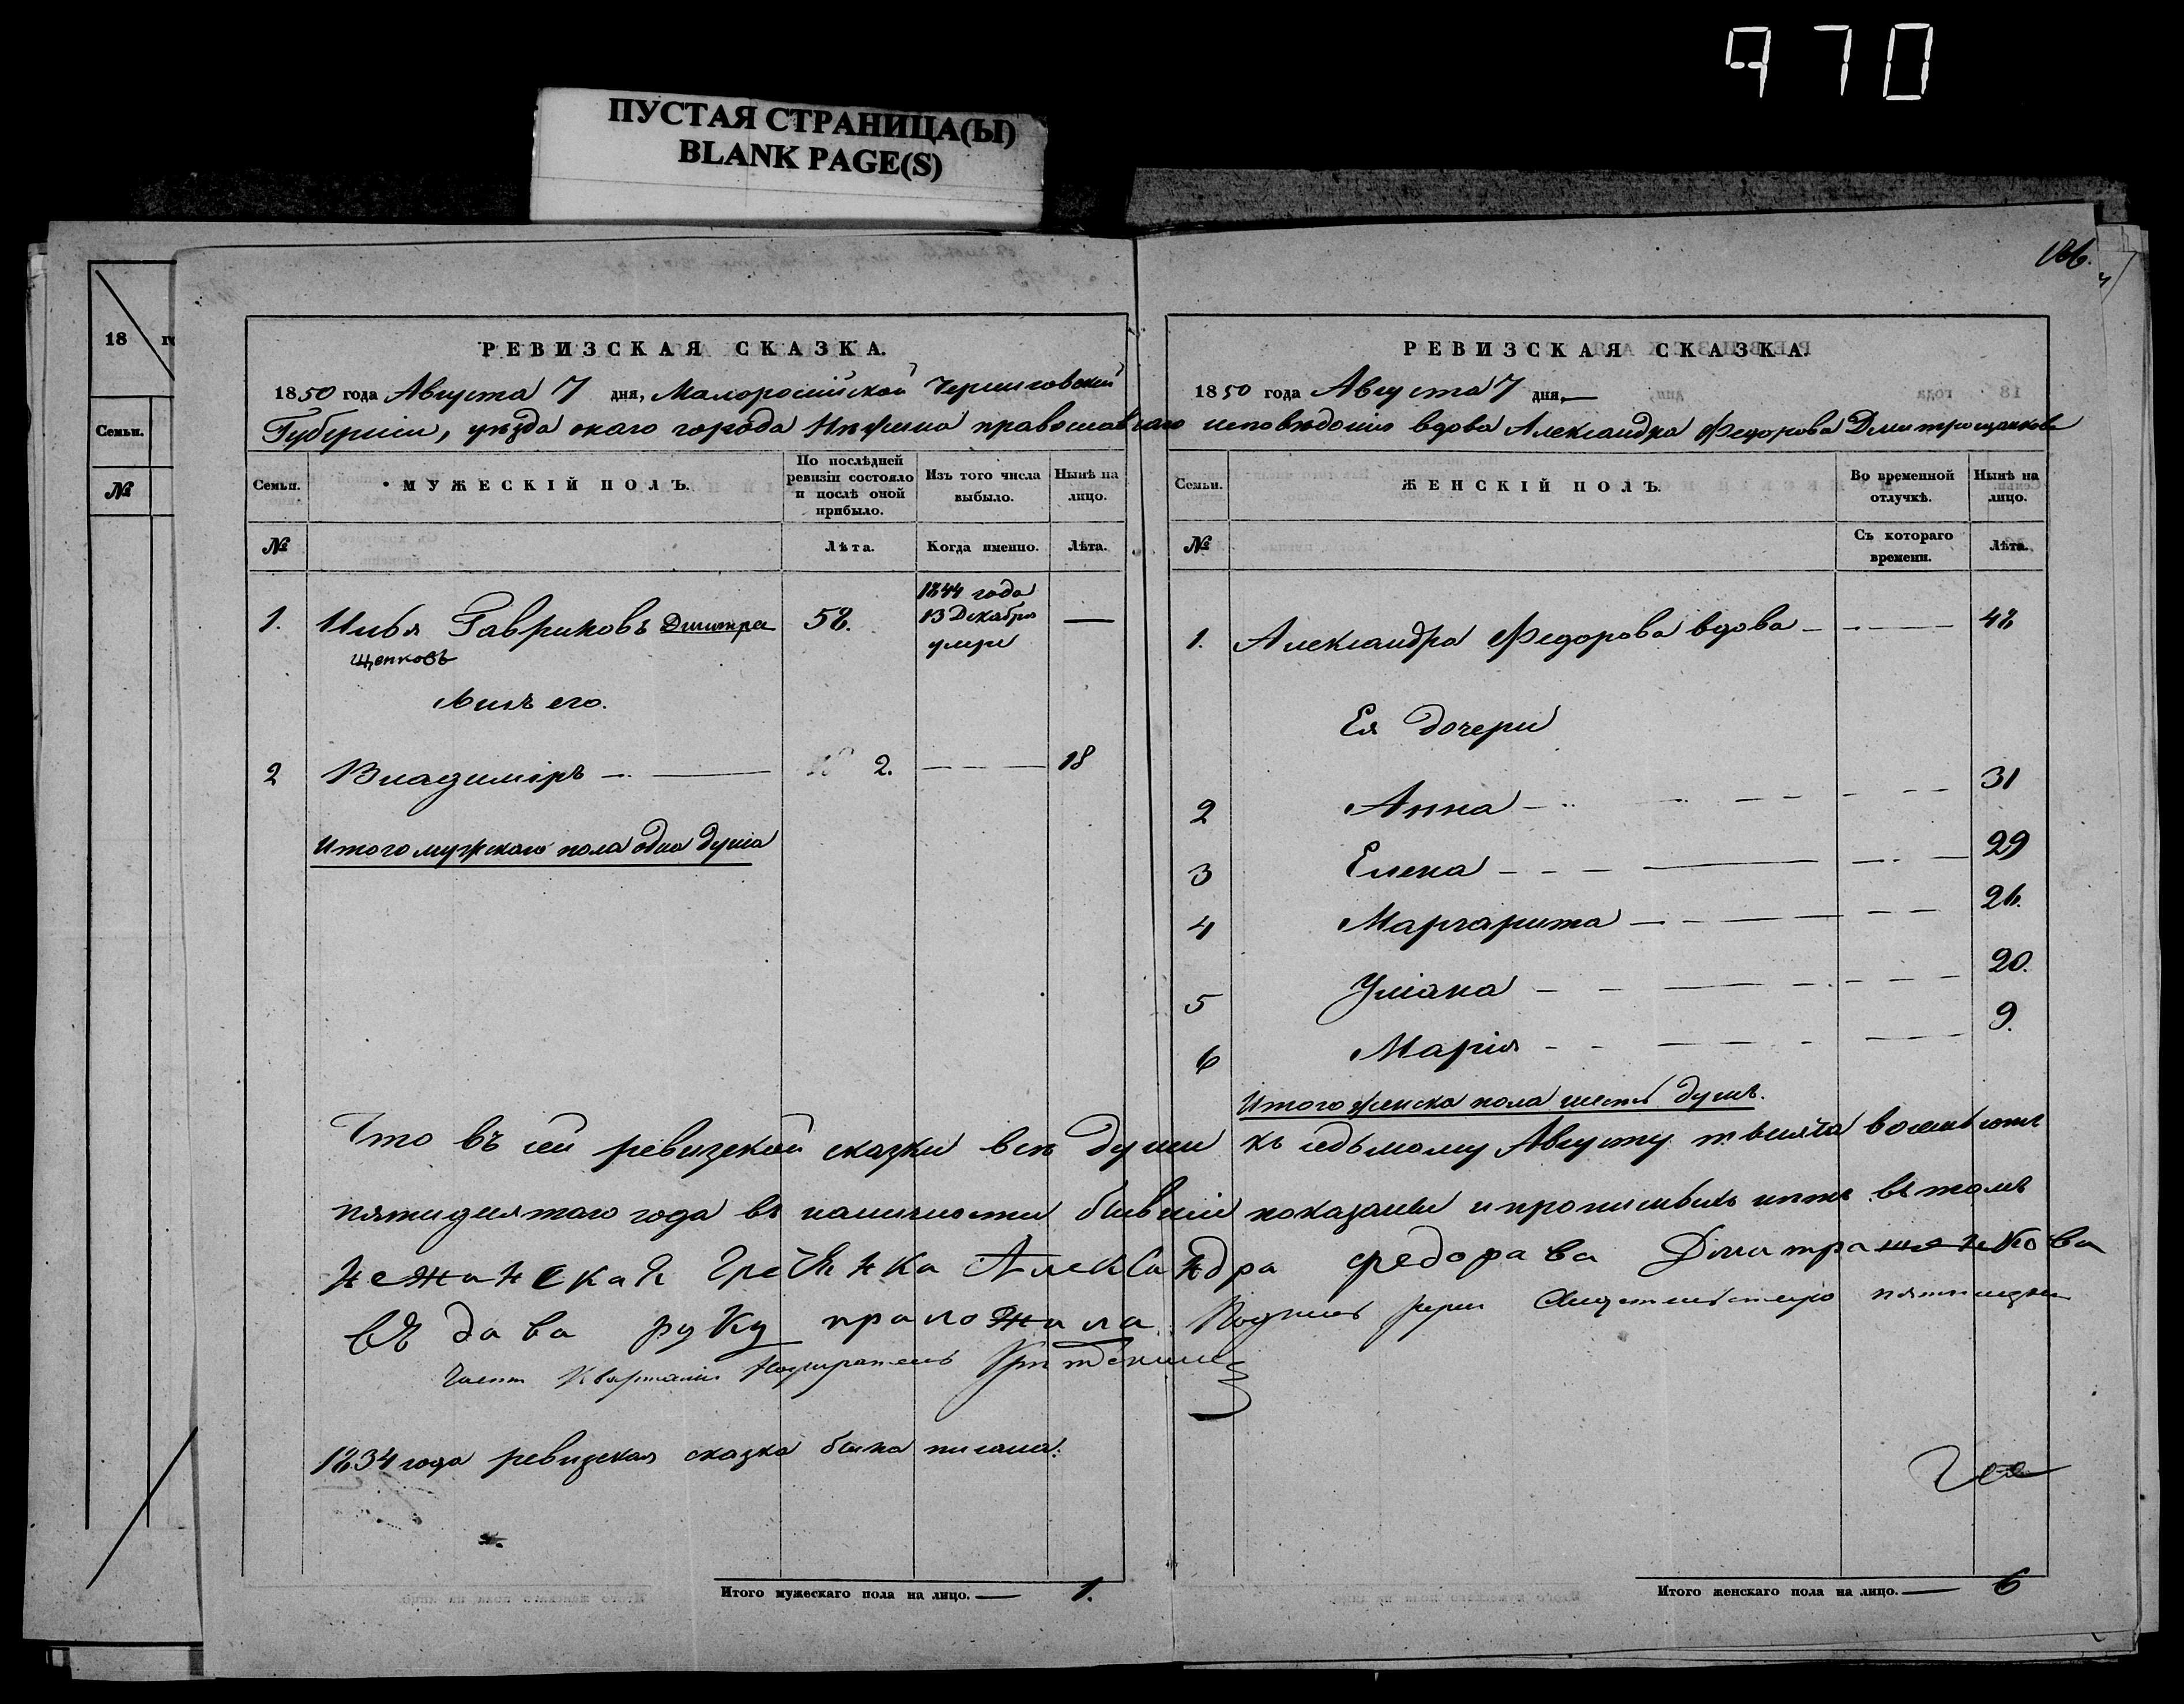 970
ПУСТАЯ СТРАНИЦА(Ы)
BLANK PAGE(S)
18
Семьи.
№
РЕВИЗСКАЯ СКАЗКА.
1850 года Августа 7 дня, Малоросійской Черниговской
Губерніи, уѣзда онаго города Нѣжина православнаго
Семьи.
МУЖЕСКІЙ ПОЛЪ.
По послѣдней ревизіи состояло и послѣ оной прибыло.
Изъ того числа выбыло.
Нынѣ на лицо.
№
Лѣта.
Когда именно.
Лѣта.
1. Илья Гавриловъ Дмитра 58. 1844 года 13 Декабря умре —
щенковъ
Сынъ его.
2 Владиміръ — 2. — 18
Итого мужскаго пола одна душа
186.
РЕВИЗСКАЯ СКАЗКА.
1850 года Августа 7 дня,
исповѣданія вдова Александра Федорова Дмитрощенкова
Семьи.
ЖЕНСКІЙ ПОЛЪ.
Во временной отлучкѣ.
Нынѣ на лицо.
№
Съ котораго времени.
Лѣта.
1. Александра Федорова вдова — 48
Ея дочери
2 Анна — 31
3 Елена — 29
4 Маргарита — 26.
5 Уліана — 20.
6 Марія — 9.
Итого женска пола шесть душъ.
Что въ сей ревизской сказки всѣ души къ седьмому Августу
пятидесятаго года въ наличности бывшіе показаны и прописныхъ нѣтъ въ томъ
нежинская гречянка Александра федорава Дмитращенкова
въдава руку праложила
Част Квартални Надзиратель
1834 года ревизская сказка была писана.
Итого мужескаго пола на лицо.— 1.
Итого женскаго пола на лицо.— 6